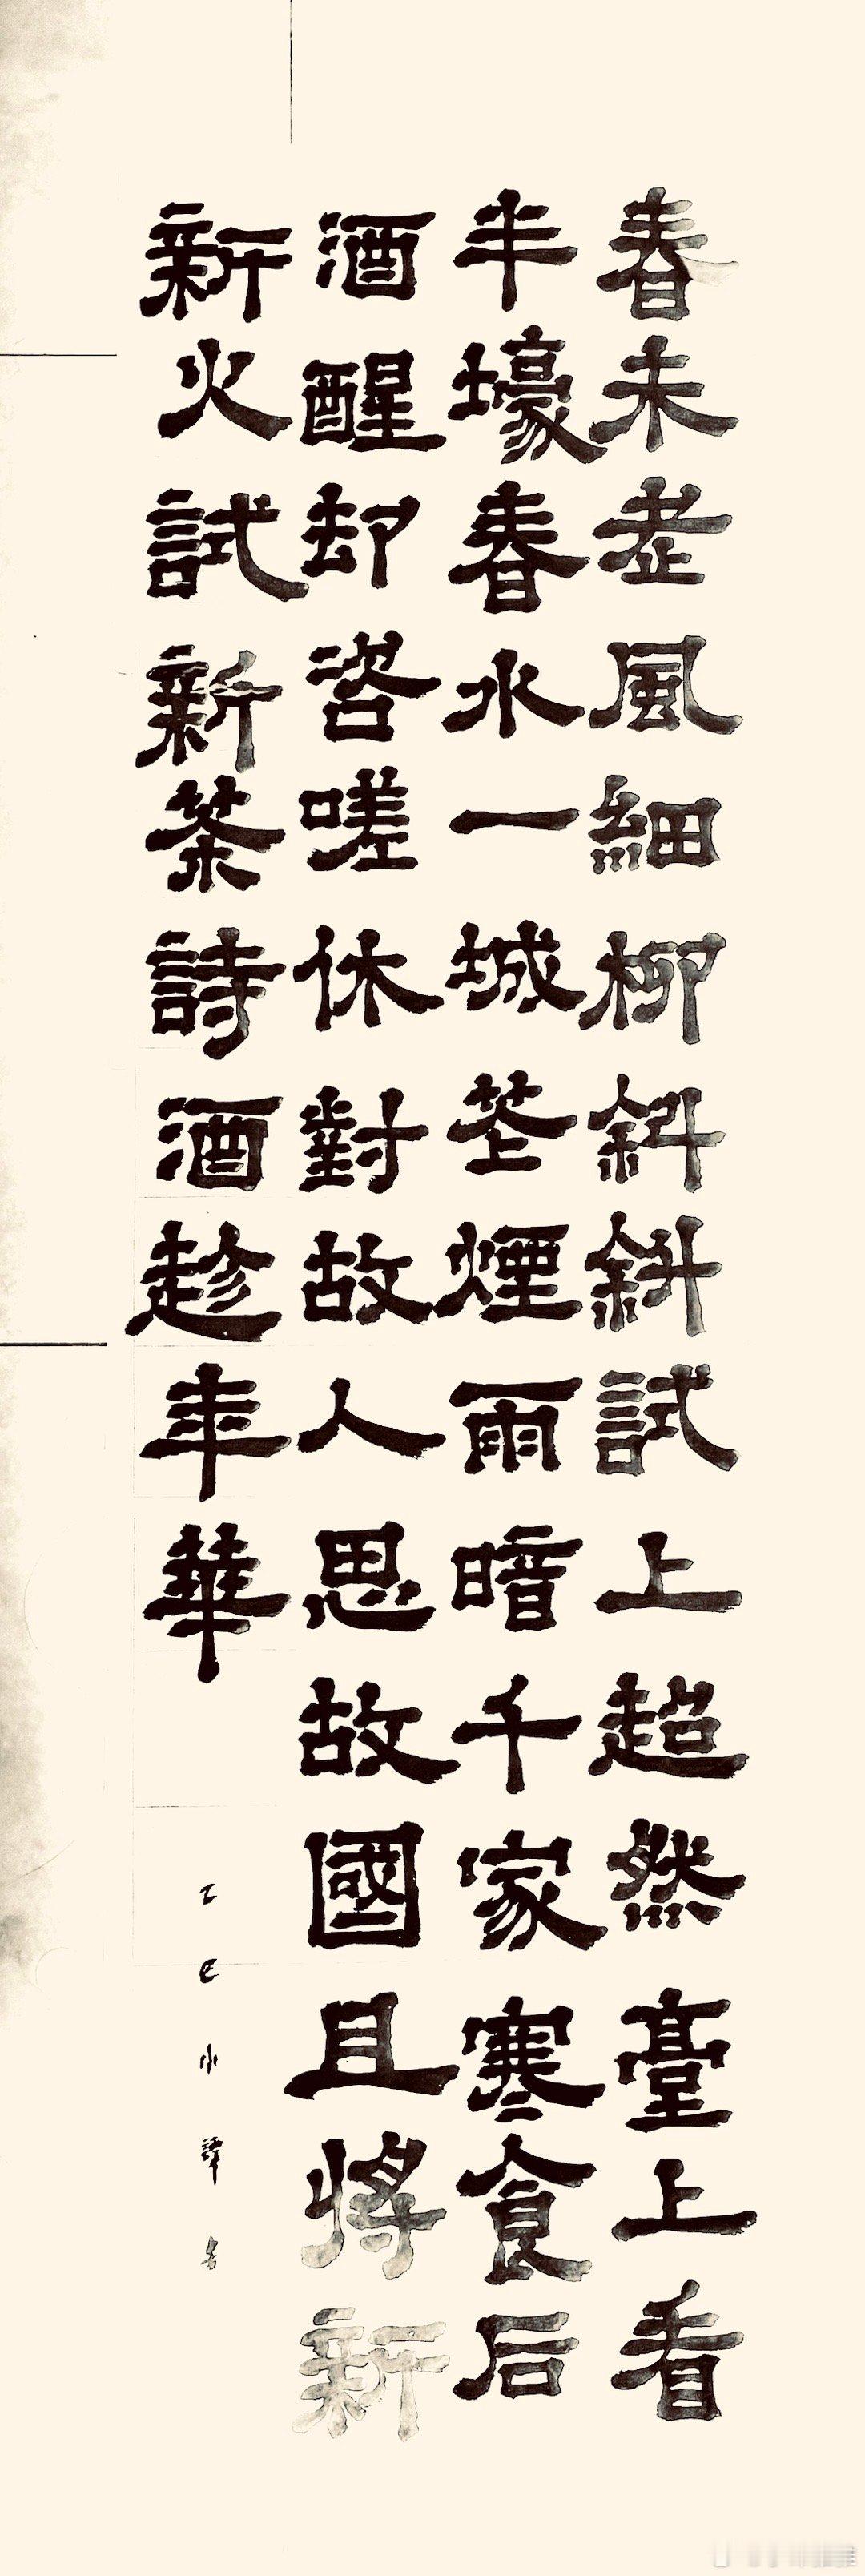 春未老風細柳斜斜試上超然臺上看
半壕春水一城花煙雨暗千家寒食后
酒醒却咨嗟休對故人思故國且將新
新火試新茶詩酒趁年華
乙巳小